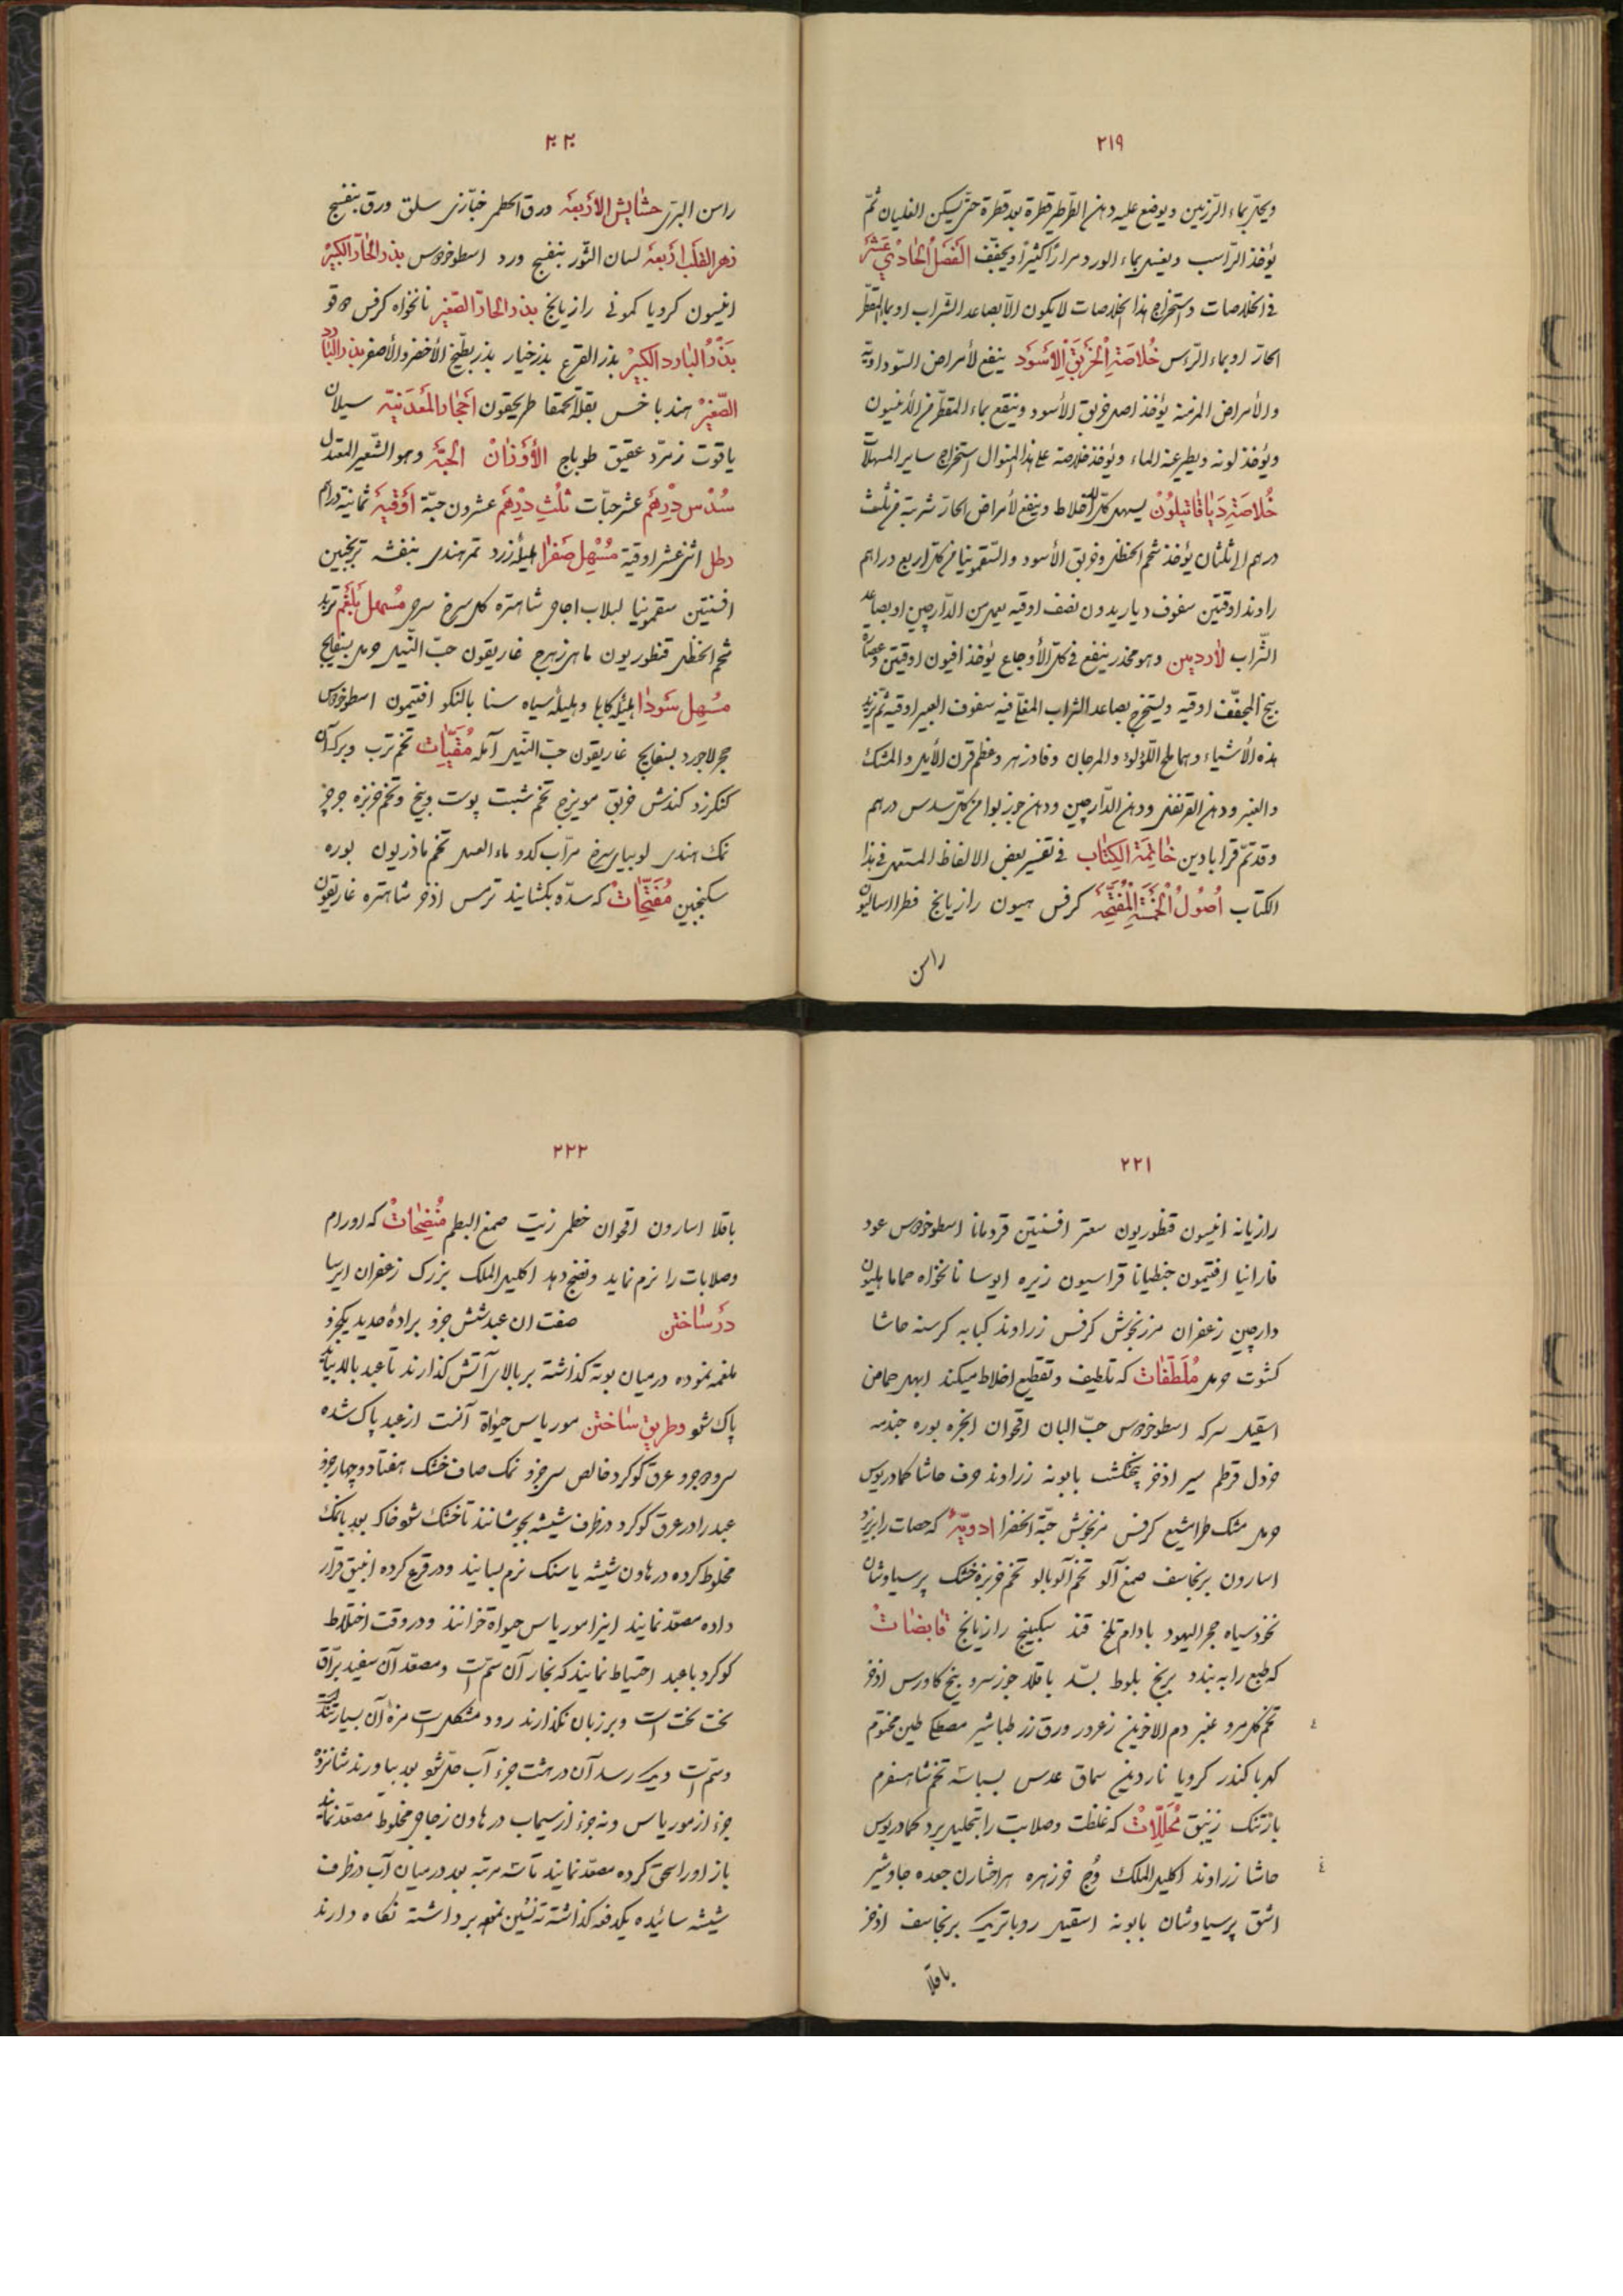 ٢١٩
ويحلّ بماء الرّزين ويوضع عليه دهن الطّرطير قطرة بعد قطرة حتّى يسكن الغليان ثمّ
يؤخذ الرّاسب ويغسل بماء الورد مرارًا كثيرًا ويجفّف الفصل الحادي عشر
في الخلاصات واستخراج هذا الخلاصات لا يكون الّا بصاعد الشّراب او بماء المقطّر
الحارّ او بماء الرّاس خلاصة الخربق الاسود ينفع لأمراض السّوداويّة
والأمراض المزمنة يؤخذ اصل خربق الأسود وينقع بماء المقطّر من الأنيسون
ويؤخذ لونه ويطير عنه الماء ويؤخذ خلاصة على هذا المنوال استخراج ساير المسهلات
خلاصة دياقاتيلون يسهل كلّ الاخلاط وينفع لأمراض الحارّ شربته من ثلث
درهم الى ثلثان يؤخذ شحم الحنظل وخربق الأسود والسّقمونيا من كلّ اربع دراهم
راوند اوقتين سفوف دياريدون نصف اوقيه يعمل من الدّارچين او بصاعد
الشّراب لاردین وهو مخدّر ينفع في كلّ الأوجاع يؤخذ افيون اوقيتين وعصاره
بنج المجفّف اوقيه ويستخرج بصاعد الشّراب المقاّ فيه سفوف العبير اوقيه ثمّ تزيد
هذه الأشياء وهما ملح اللّؤلؤ والمرجان وفادزهر وعظم قرن الأيل والمشك
والعنبر ودهن القرنفل ودهن الدّارچين ودهن جوز بوا من كلّ سدس درهم
وقد تمّ قرابادين خاتمة الكتاب في تفسير بعض الالفاظ المستعمل في هذا
الكتاب اصول الخمسة المفتّحة كرفس هليون رازيانج فطراساليون
راسن
٢٢٠
راسن البرّى حشايش الاربعه ورق الخطمى خبّازى سلق ورق بنفسج
زهر القلب اربعه لسان الثّور بنفسج ورد اسطوخودوس بذر الحارّ الكبير
انيسون كرويا كمونى رازيانج بذر الحارّ الصّغير نانخواه كرفس دوقو
بذر البارد الكبير بذر القرع بذر خيار بذر بطّيخ الأخضر والأصفر بذر البارد
الصّغير هندبا خس بقلة الحمقا طريحقون احجار المعدنيه سيلان
ياقوت زمرّد عقيق طوباج الأوزان الحبّه وهو الشّعير المعتدل
سدس درهم عشر حبّات ثلث درهم عشرون حبّة اوقيه ثمانية دراهم
رطل اثنى عشر اوقية مسهل صفرا هليلهٔ زرد تمر هندى بنفشه ترنجبين
افسنتين سقمونيا لبلاب اجاص شاهتره كل سرخ مسهل بلغم تربد
شحم الحنظل قنطوريون ماهى زهرج غاريقون حبّ النّيل حرمل بسفايج
مسهل سودا هليلهٔ كابلى وهليلهٔ سياه سنا بالنكو افتيمون اسطوخودوس
حجر لاجورد بسفايج غاريقون حبّ النّيل آمله مقيّات تخم ترب وبرك آن
كنكرزد كندش خربق مويزج تخم شبت پوست وبيخ وتخم خربزه
نمك هندى لوبياى سرخ سراب كدو ماء العسل تخم ماذريون بوره
سكنجبين مفتّحات كه سدّه بكشايند ترمس اذخر شاهتره غاريقون
٢٢١
رازيانه انيسون قنطوريون سعتر افسنتين قردمانا اسطوخودوس عود
فارانيا افتيمون جنطيانا فراسيون زيره ايرسا نانخواه حماما هليون
دارچين زعفران مرزنجوش كرفس زراوند كبابه كرسنه حاشا
كشوت حرمل ملطّفات كه تلطيف وتقطيع اخلاط ميكند ابهل حماض
اسقيل سركه اسطوخودوس حبّ البان اقحوان انجره بوره
خردل قرطم سير اذخر پنجنكشت بابونه زراوند حرف حاشا كمادريوس
حرمل مشك طرامشيع كرفس مرزنجوش حبّة الخضرا ادويهٔ كه حصات را بريزد
اسارون برنجاسف صمغ آلو تخم آلوبالو تخم خربزه خشك پرسياوشان
نخود سياه حجر اليهود بادام تلخ قند سكبينج رازيانج قابضات
كه طبع را به بندد برنج بلوط بسّد باقلا جوز سرو بنج كاورس اذخر
تخم كل مرو عنبر دم الاخوين زعرور ورق زر طباشير مصطكى طين مختوم
كهربا كندر كرويا ناردين سماق عدس بسباسه تخم شاهسفرم
بارتنك زنبق محلّلات كه غلظت وصلابت را بتحليل برد كمادريوس
حاشا زراوند اكليل الملك وج خرزهره هزارجشان جعده جاوشير
اشق پرسياوشان بابونه اسقيل روباتريك برنجاسف اذخر
باقلا
٢٢٢
باقلا اسارون اقحوان خطمى زيت صمغ البطم منضجات كه اورام
وصلابات را نرم نمايد ونضج دهد اكليل الملك بزرك زعفران ايرسا
در ساختن صفت ان عبد شش جزو برادهٔ حديد يكجزو
ملغمه نموده درميان بوته كذاشته بر بالاى آتش كذارند تا عبد بالا بيايد
پاك شو وطريق ساختن مورياس حيواة آنست از عبد پاك شده
سى و دو جزو عرق كوكرد خالص سى جزو نمك صاف خشك هفتاد وچهار جزو
عبد را در عرق كوكرد در ظرف شيشه بجوشانند تا خشك شو خاك بعد با نمك
مخلوط كرده در هاون شيشه يا سنك نرم بسايند ودر قرع كرده انبيق قرار
داده مصعّد نمايند اينرا مورياس حيواة خوانند ودر وقت اختلاط
كوكرد با عبد احتياط نمايند كه بخار آن سمّ است ومصعّد آن سفيد برّاق
لخت لخت است وبر زبان نكذارند زود متشكل است مزهٔ آن بسيار تند است
وسمّ است وديك رسد آن در هشت جزء آب حلّ شو بعد بياورند شانزده
جزء از مورياس ونه جزء از سيماب در هاون زجاجى مخلوط مصعّد نمايند
باز او را سحق كرده مصعّد نمايند تا سه مرتبه بعد درميان آب در ظرف
شيشه سائيده يكدفعه كذاشته ته نشين نموده برداشته نكاه دارند